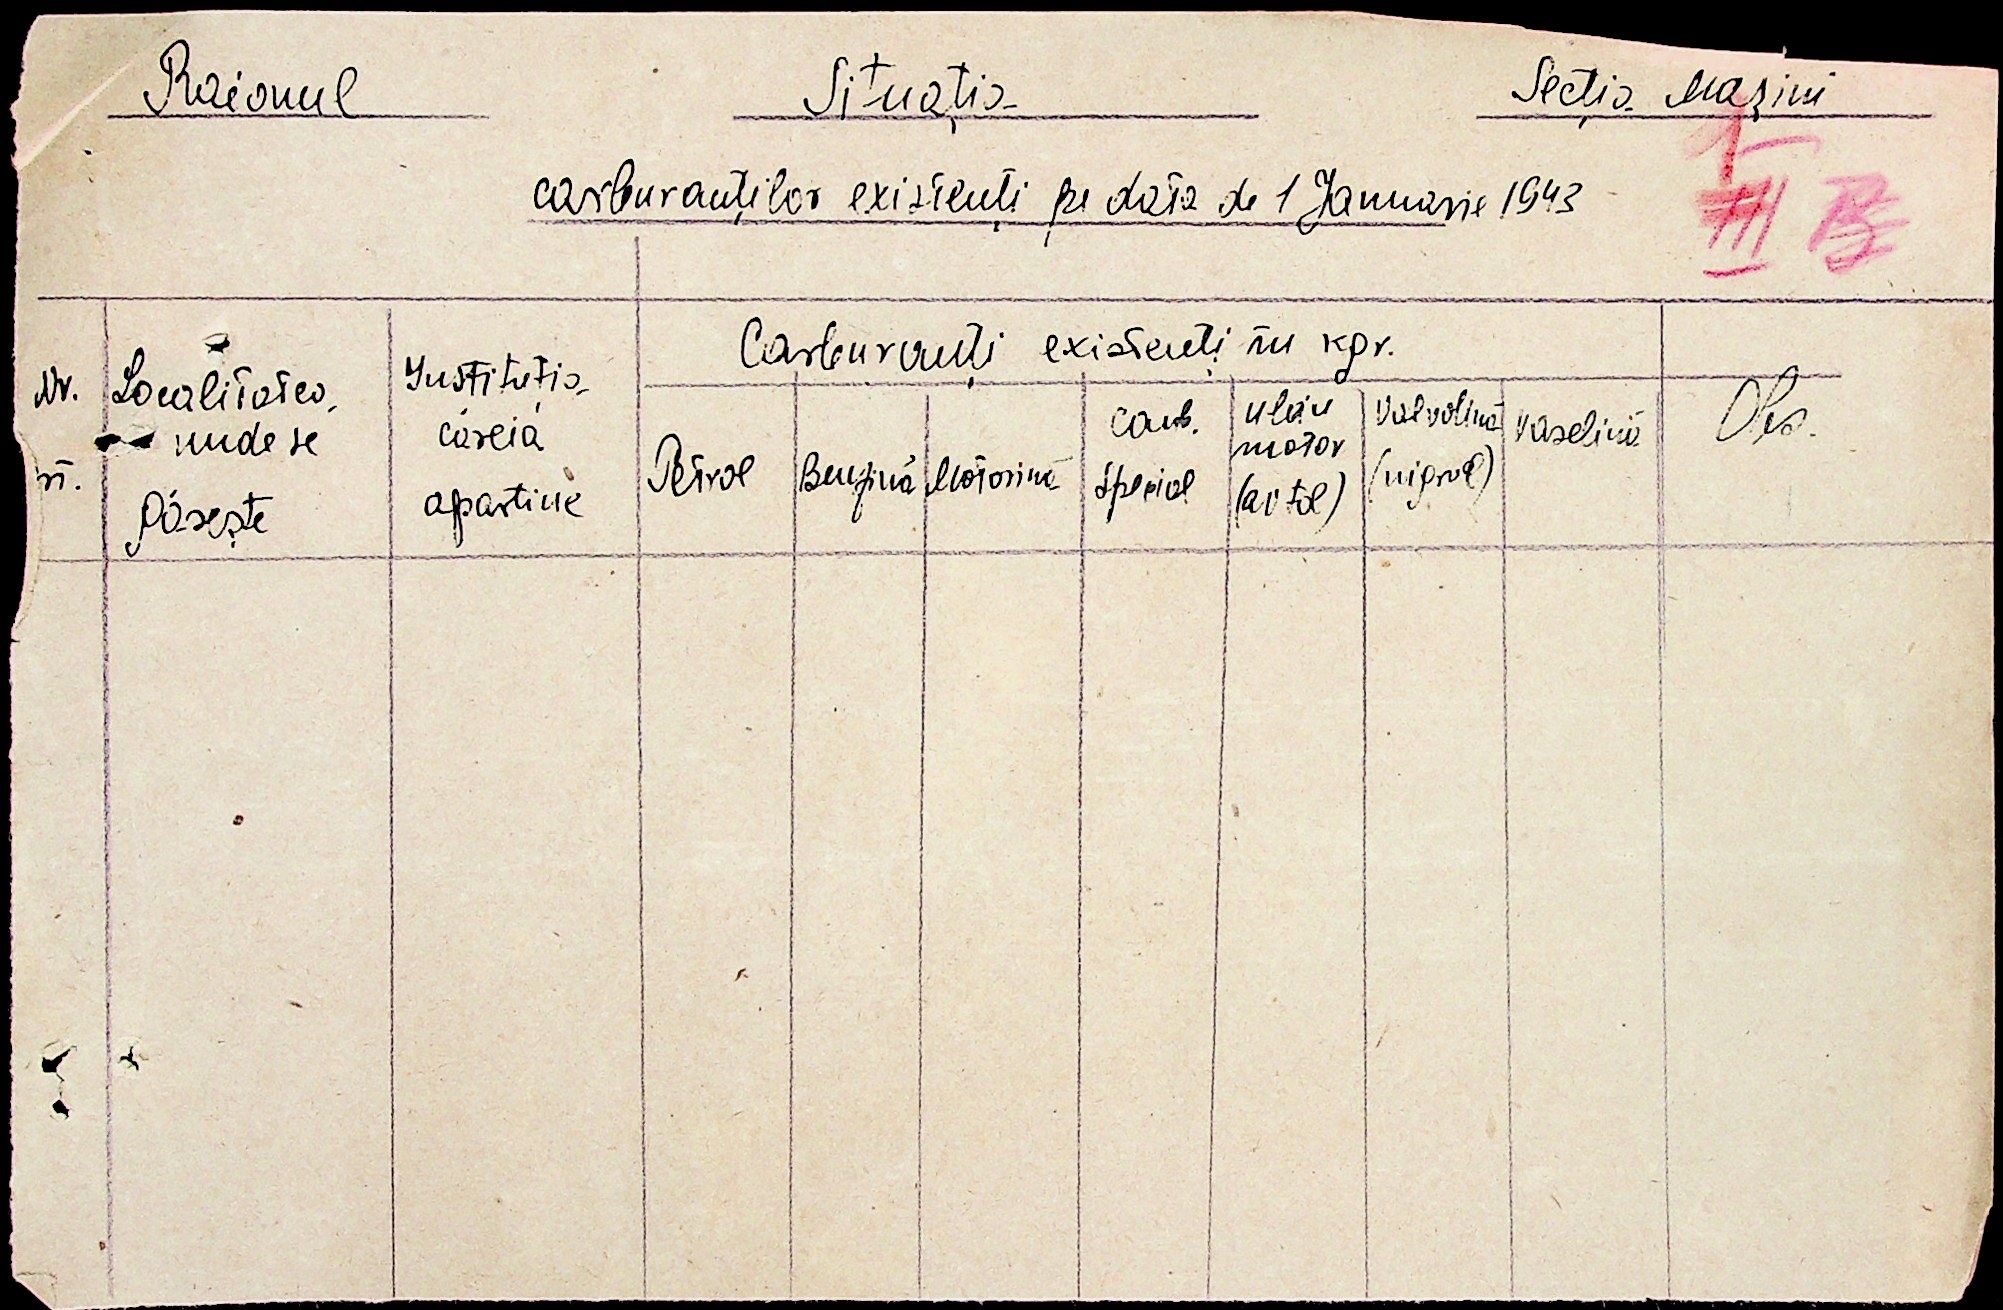 Raionul
Situația
Secția Mașini
carburanților existenți pe data de 1 Januarie 1943
III
Carburanți existenți în kgr.
Nr.
Localitatea,
unde se
găsește
Instituția
căreia
aparține
Petrol
Benzină
Motorină
Comb.
special
Uleiu
motor
(avtol)
Valvolină
(nigrol)
Vaselină
Obs.